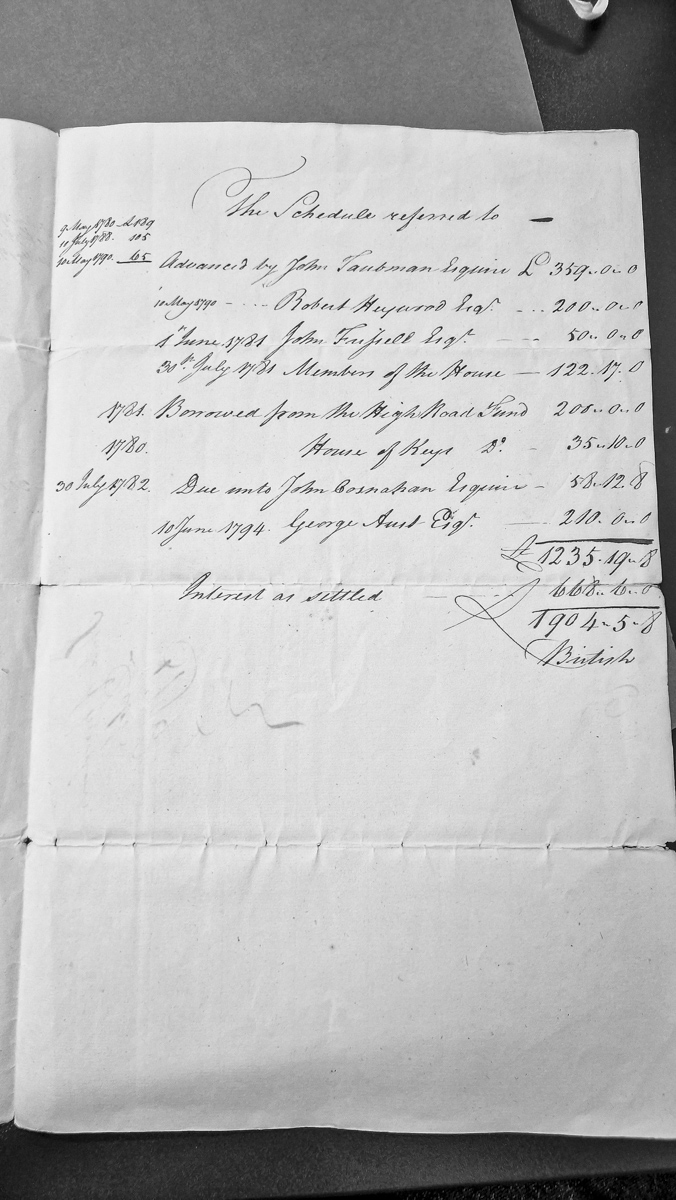 The Schedule referred to —
9 May 1780 – £189
10 July 1788. 105
10 May 1790. 65
Advanced by John Taubman Esquire £ 359 „ 0 „ 0
10 May 1790 – . . . Robert Heywood Esqr. - . . 200 „ 0 „ 0
1st June 1781 John Frissell Esqr. — — 50 „ 0 „ 0
30th. July 1781 Members of the House — 122 „ 17 „ 0
1781. Borrowed from the High Road Fund 200 „ 0 „ 0
1780. House of Keys Do. - 35 „ 10 „ 0
30 July 1782. Due unto John Cosnahan Esquire - 58 „ 12 „ 8
10 June 1794. George Aust Esqr. — 210 „ 0 „ 0
£ 1235 „ 19 „ 8
Interest as settled — — 668 „ 6 „ 0
£ 1904 „ 5 „ 8
British